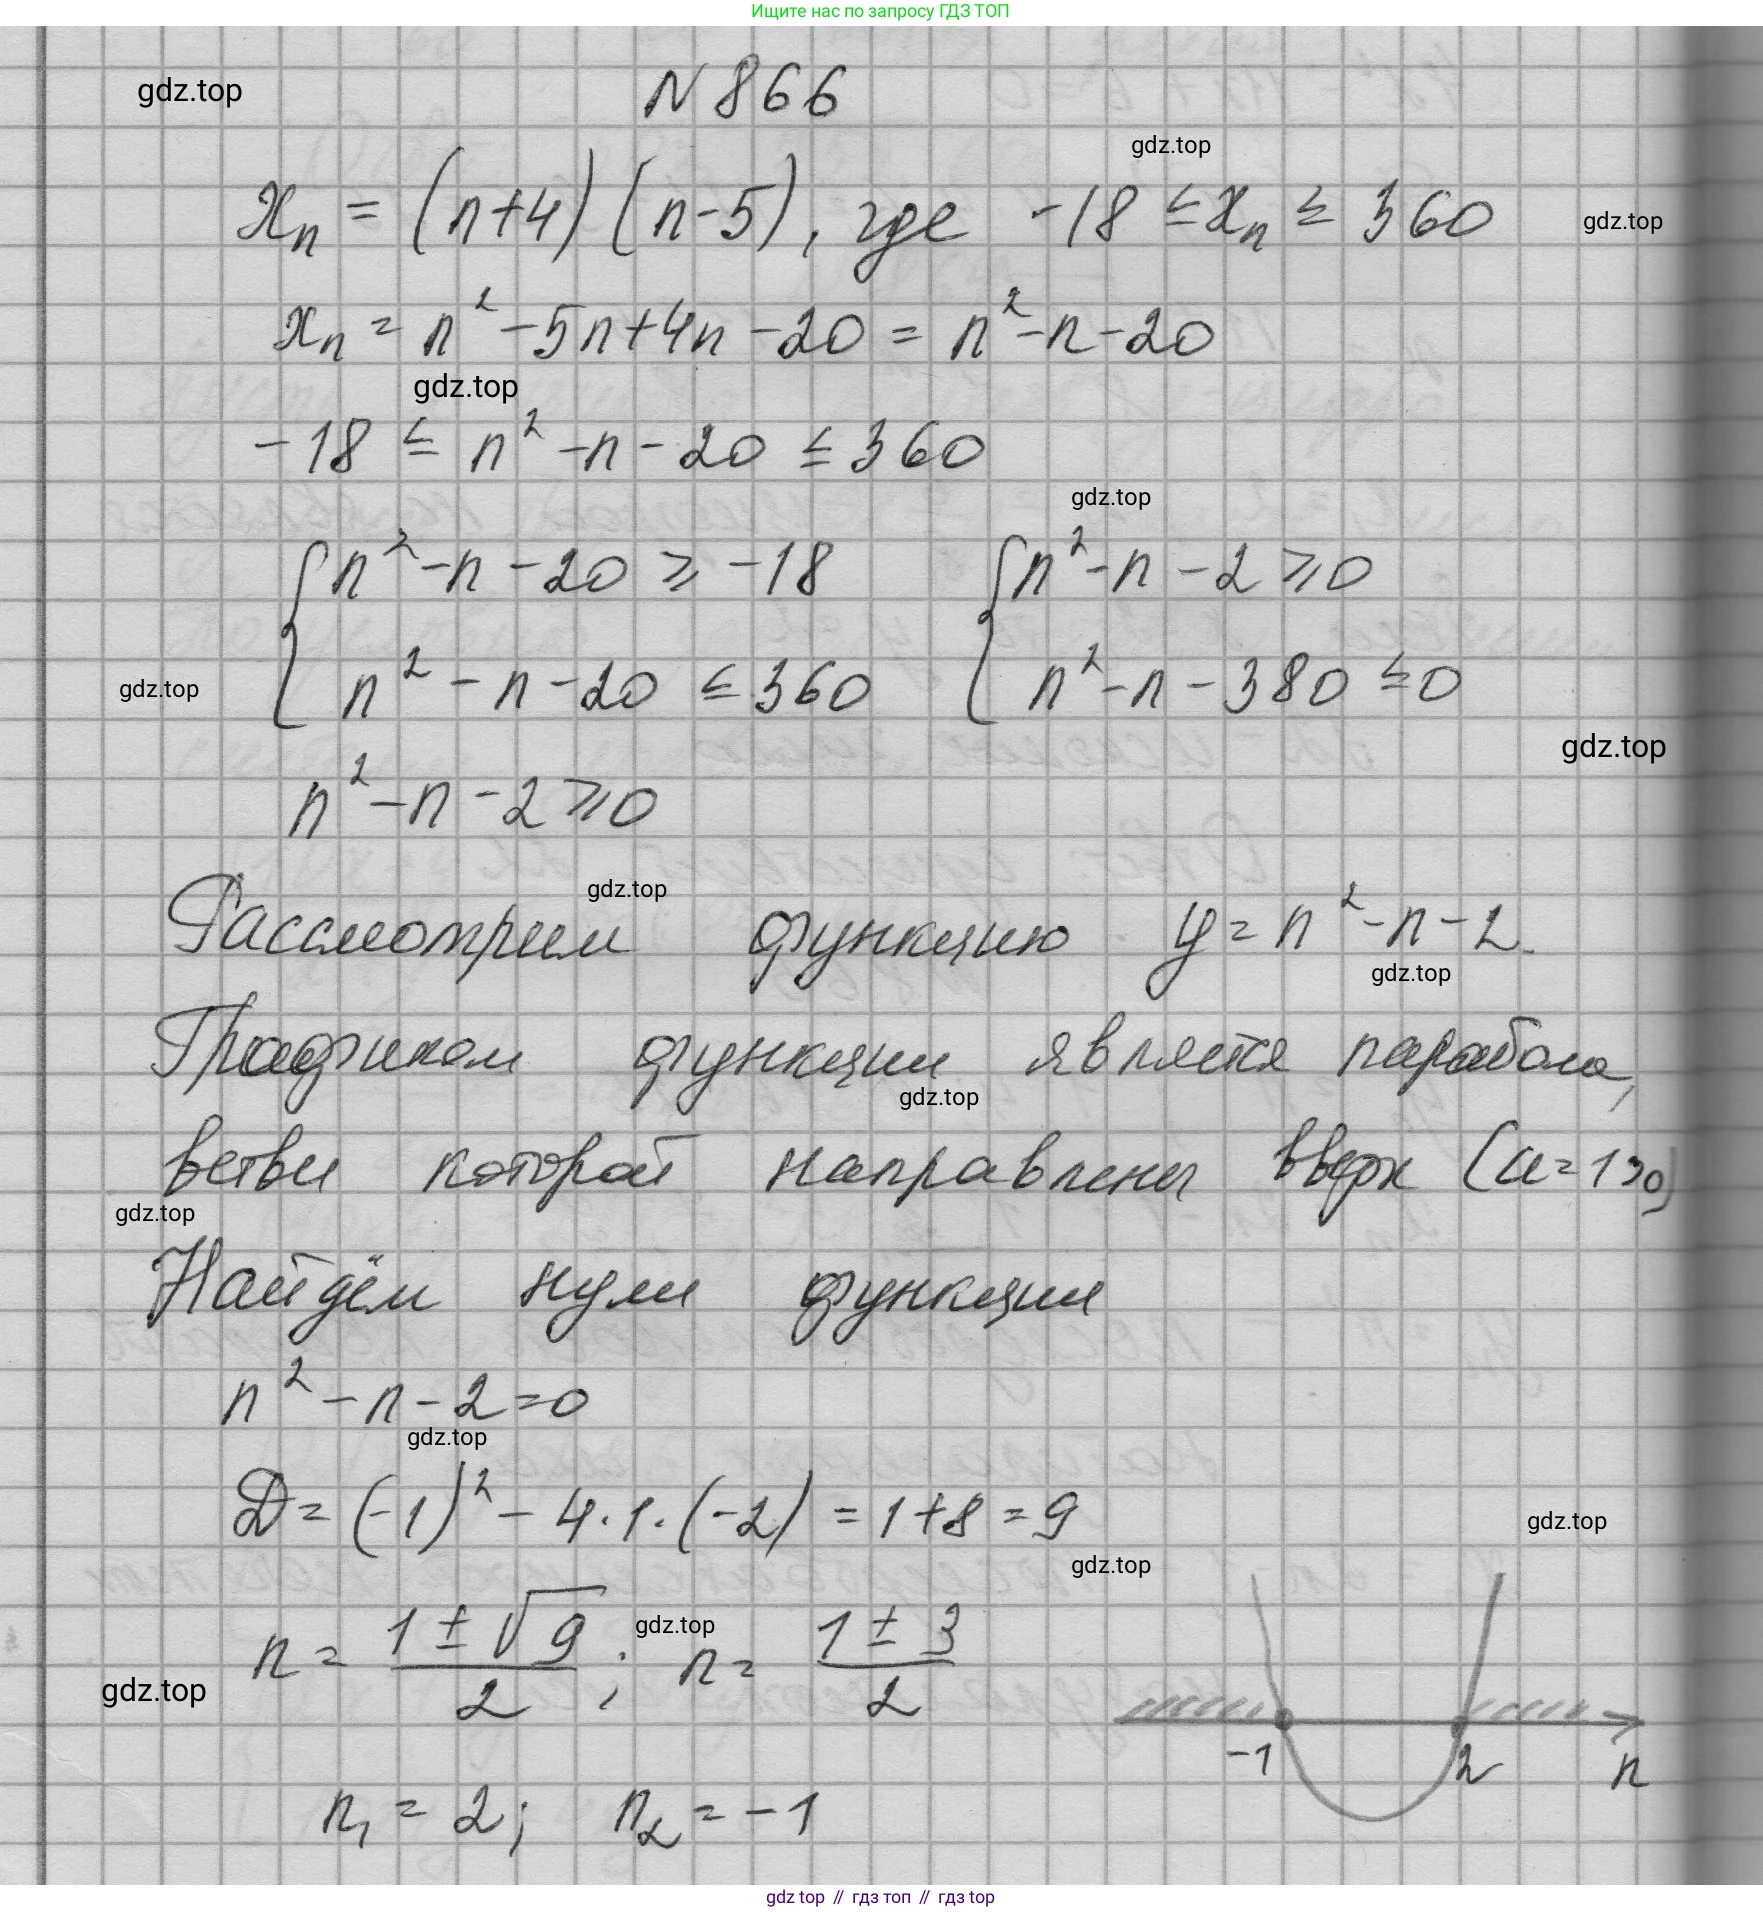 Ищите нас по запросу ГДЗ ТОП
gdz.top
N 866
gdz.top
xₙ = (n+4)(n-5), где -18 ≤ xₙ ≤ 360
gdz.top
xₙ = n² - 5n + 4n - 20 = n² - n - 20
gdz.top
-18 ≤ n² - n - 20 ≤ 360
gdz.top
{ n² - n - 20 ≥ -18 { n² - n - 2 ≥ 0
n² - n - 20 ≤ 360 n² - n - 380 ≤ 0
gdz.top
gdz.top
n² - n - 2 ≥ 0
gdz.top
Рассмотрим функцию y = n² - n - 2.
gdz.top
Графиком функции является парабола,
gdz.top
ветви которой направлены вверх (a = 1 > 0)
gdz.top
Найдём нули функции
n² - n - 2 = 0
gdz.top
D = (-1)² - 4·1·(-2) = 1 + 8 = 9
gdz.top
gdz.top
n = (1 ± √9)/2 ; n = (1 ± 3)/2
gdz.top
gdz.top
-1 2 n
n₁ = 2; n₂ = -1
gdz top // гдз топ // гдз top